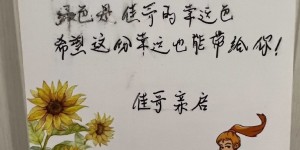 绿色是佳哥的幸运色
希望这份幸运也能带给你!
佳哥亲启